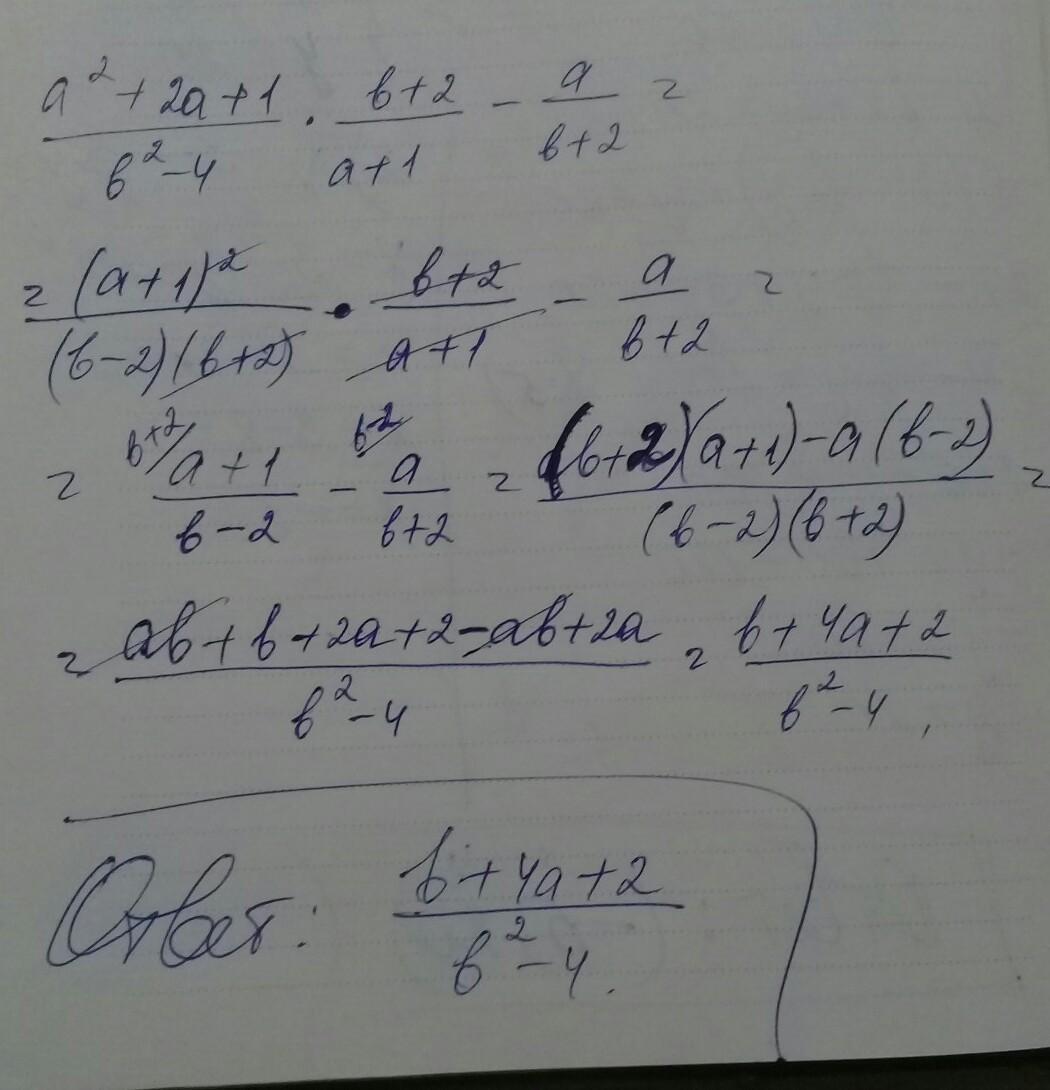 (a² + 2a + 1)/(b² - 4) · (b + 2)/(a + 1) - a/(b + 2) =
= (a + 1)²/((b - 2)(b + 2)) · (b + 2)/(a + 1) - a/(b + 2) =
= b+2/ (a + 1)/(b - 2) - b-2/ a/(b + 2) = ((b + 2)(a + 1) - a(b - 2))/((b - 2)(b + 2)) =
= (ab + b + 2a + 2 - ab + 2a)/(b² - 4) = (b + 4a + 2)/(b² - 4),
Ответ: (b + 4a + 2)/(b² - 4).